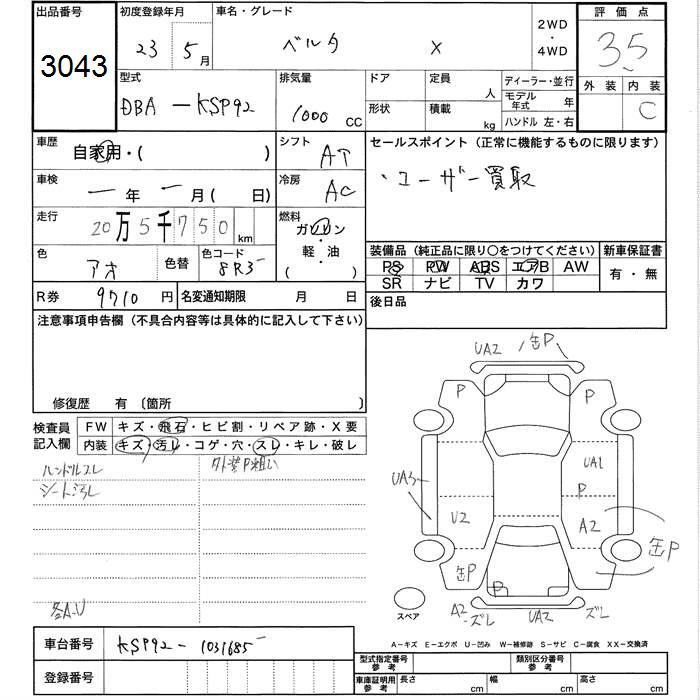 出品番号 初度登録年月 車名・グレード 2WD・4WD 評価点
3043 23 5月 ベルタ X 3.5
外装 内装 C
型式 排気量 ドア 定員 人 ディーラー・並行
DBA-KSP92 1000 CC 形状 積載 kg モデル年式 年
ハンドル 左・右
車歴 自家用・( ) シフト AT セールスポイント(正常に機能するものに限ります)
車検 ー年ー月( 日) 冷房 AC ・ユーザー買取
走行 20万5千750km 燃料 ガソリン・軽・油( )
色 アオ 色替 色コード 8R3 装備品(純正品に限り○をつけてください) 新車保証書
PS PW ABS エアB AW 有・無
SR ナビ TV カワ
R券 9710円 名変通知期限 月 日 後日品
注意事項申告欄(不具合内容等は具体的に記入して下さい)
修復歴 有 〔箇所 〕
検査員記入欄 FW キズ・飛石・ヒビ割・リペア跡・X要
内装 キズ・汚レ・コゲ・穴・スレ・キレ・破レ
ハンドルスレ 外装P粗い
シート汚レ
各A-U
UA2 缶P
P P
UA3 UA1
P
U2 A2
缶P 缶P
P
スペア A2-ズレ UA2 ズレ
A-キズ E-エクボ U-凹み W-補修跡 S-サビ C-腐食 XX-交換済
車台番号 KSP92-1031685
登録番号
型式指定番号参考 類別区分番号参考
車庫証明用参考 長さ cm 幅 cm 高さ cm